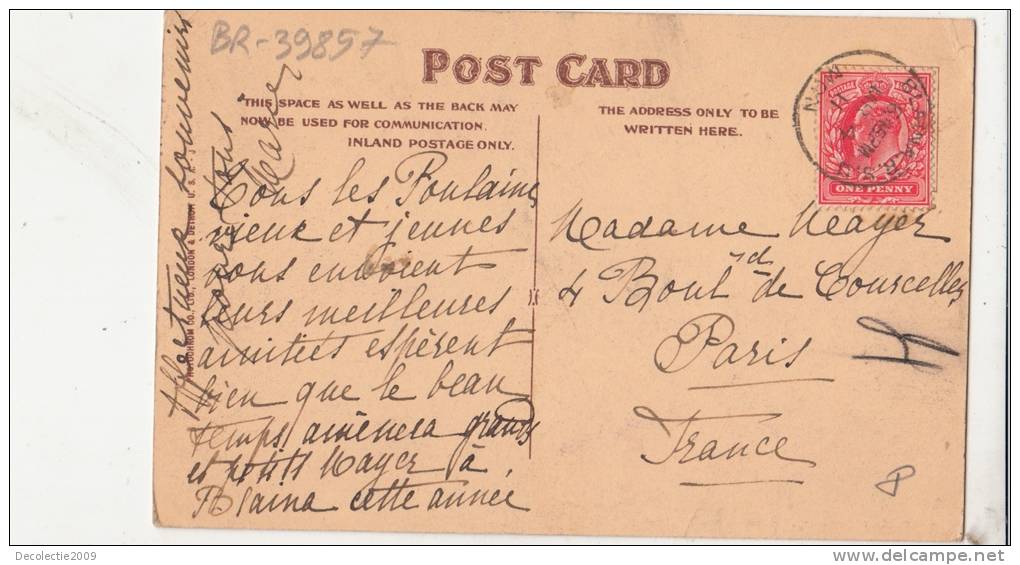 BR-39857
POST CARD
THIS SPACE AS WELL AS THE BACK MAY
NOW BE USED FOR COMMUNICATION.
INLAND POSTAGE ONLY.
THE ADDRESS ONLY TO BE
WRITTEN HERE.
POSTAGE
ONE PENNY
Tous les Poulains
vieux et jeunes
vous envoient
leurs meilleures
amitiés espèrent
bien que le beau
temps amènera grands
et petits Mayer à
Blaina cette année
Affectueux souvenirs
pour tous
Marie
PHOTOCHROM CO., LTD., LONDON & DETROIT U. S. A.
Madame Mayer
4 Boulvd de Courcelles
Paris
France
8
Decolectie2009
www.delcampe.net